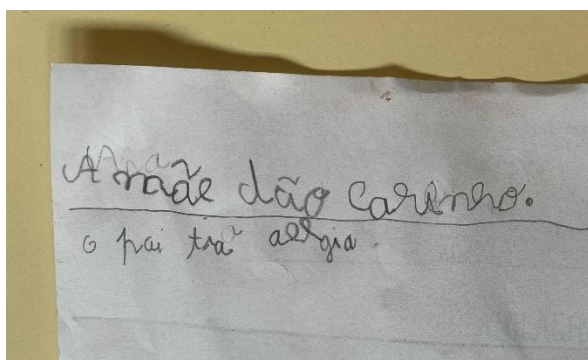 A mãe dão carinho.
o pai trã alegia.